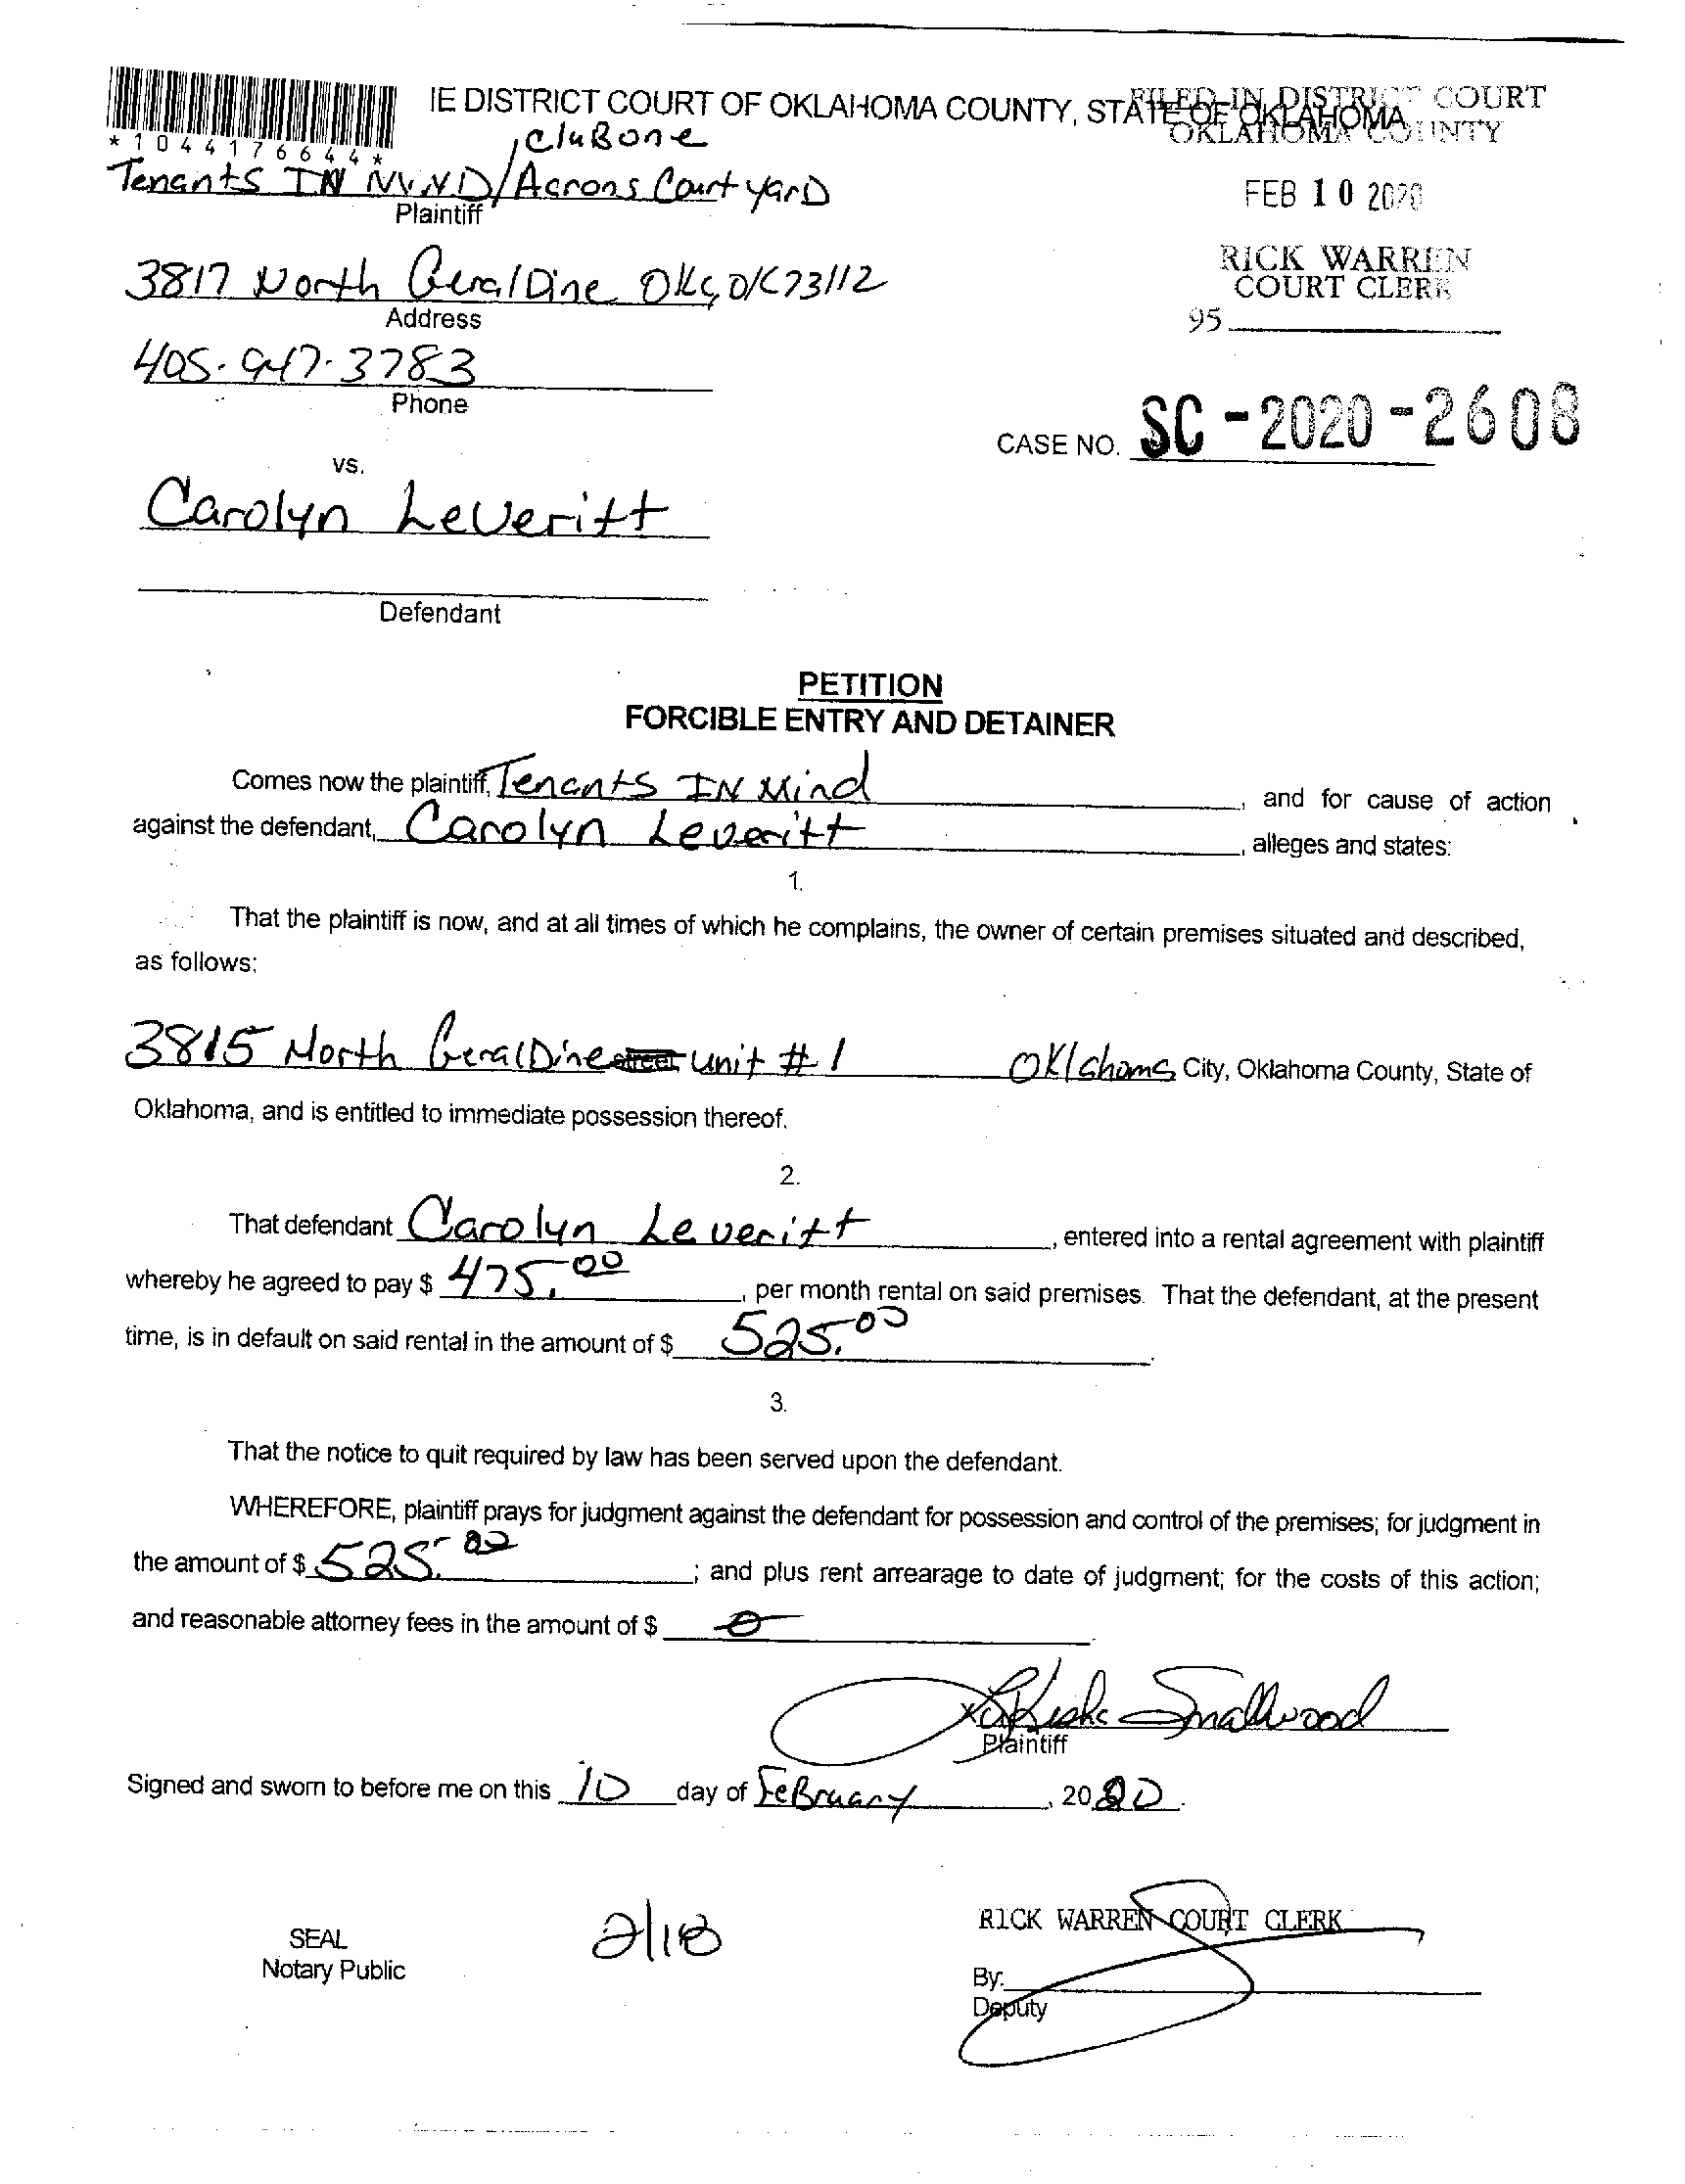 IE DISTRICT COURT OF OKLAHOMA COUNTY, STATE OF OKLAHOMA
FILED IN DISTRICT COURT
OKLAHOMA COUNTY
*1044176644*
, CluBone
Tenants IN MIND/Acrons CourtyarD
Plaintiff
FEB 10 2020
3817 North GeralDine OKC, OK 73112
Address
RICK WARREN
COURT CLERK
95
405-947-3783
Phone
CASE NO. SC-2020-2608
vs.
Carolyn Leveritt
Defendant
PETITION
FORCIBLE ENTRY AND DETAINER
Comes now the plaintiff, Tenants IN Mind, and for cause of action
against the defendant, Carolyn Leveritt, alleges and states:
1.
That the plaintiff is now, and at all times of which he complains, the owner of certain premises situated and described,
as follows:
3815 North GeralDine street unit #1 Oklahoma City, Oklahoma County, State of
Oklahoma, and is entitled to immediate possession thereof.
2.
That defendant Carolyn Leveritt, entered into a rental agreement with plaintiff
whereby he agreed to pay $ 475.00, per month rental on said premises. That the defendant, at the present
time, is in default on said rental in the amount of $ 525.00.
3.
That the notice to quit required by law has been served upon the defendant.
WHEREFORE, plaintiff prays for judgment against the defendant for possession and control of the premises; for judgment in
the amount of $ 525.00; and plus rent arrearage to date of judgment; for the costs of this action;
and reasonable attorney fees in the amount of $ 0.
x Smallwood
Plaintiff
Signed and sworn to before me on this 10 day of FeBruary, 2020.
RICK WARREN COURT CLERK
SEAL
Notary Public
By:
Deputy